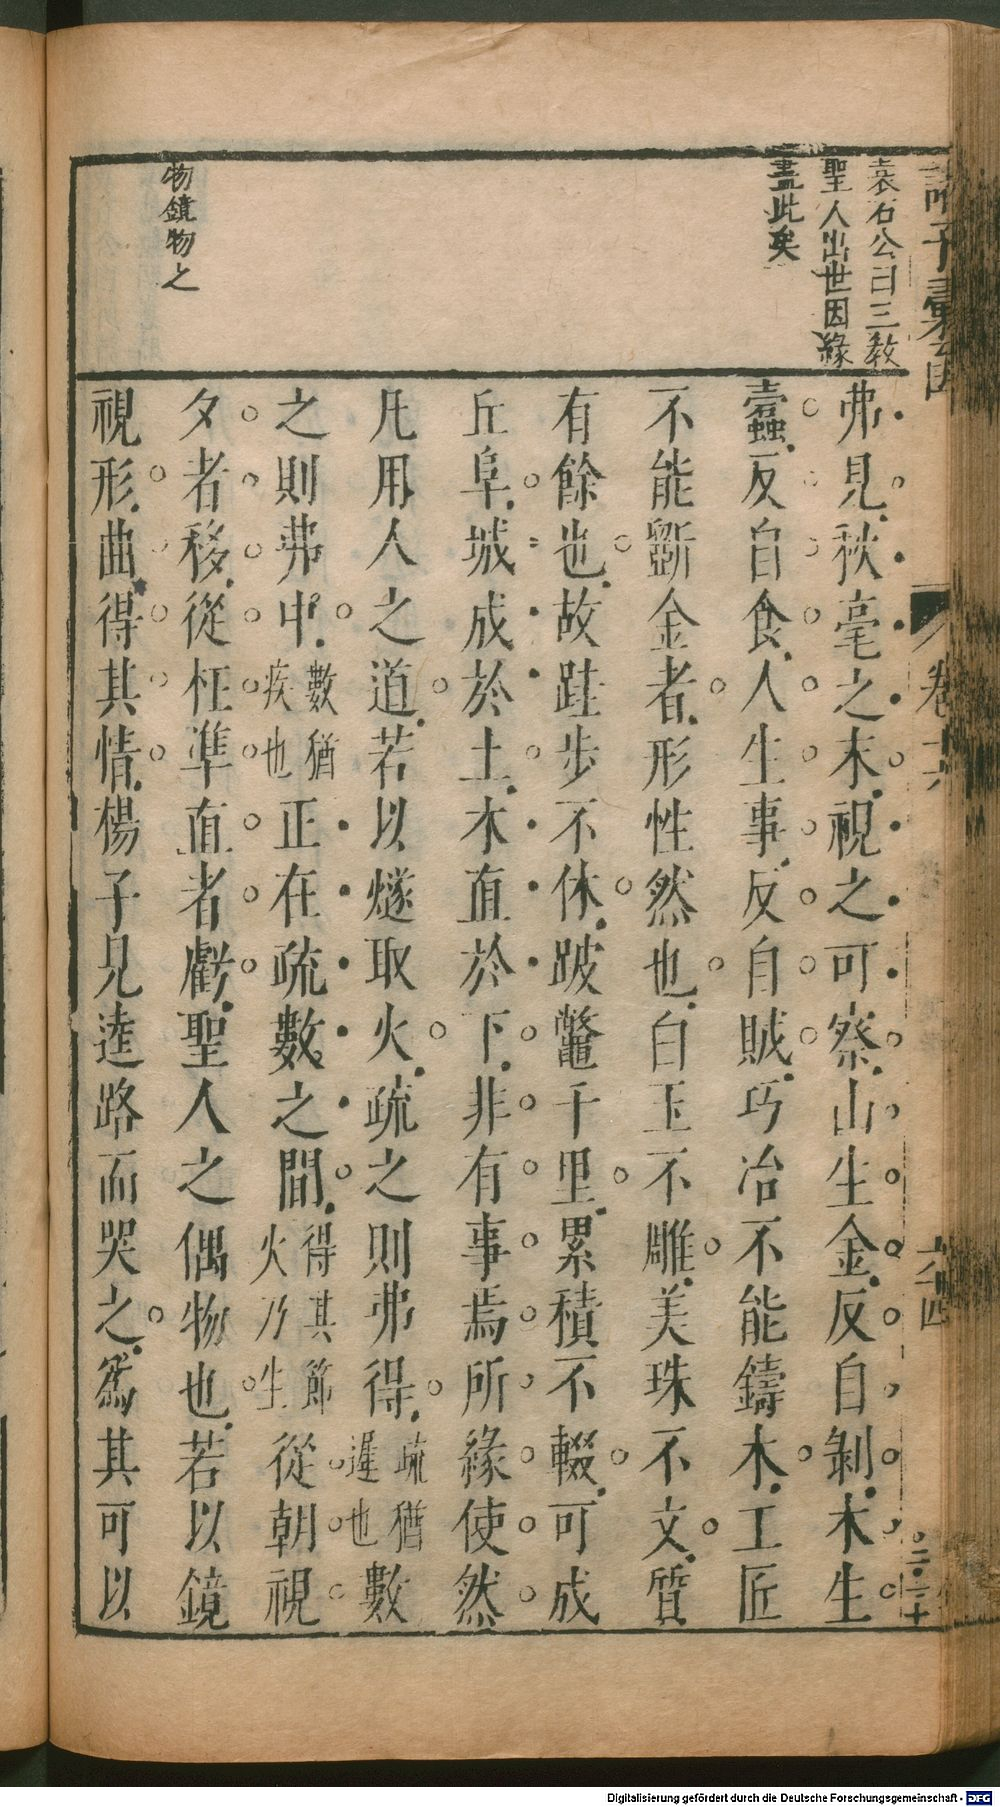 袁石公曰三教
聖人出世因緣
盡此矣
物鏡物之
弗見秋毫之末視之可察山生金反自剝木生
蠹反自食人生事反自賊巧冶不能鑄木工匠
不能斲金者形性然也白玉不雕美珠不文質
有餘也故跬步不休跛鼈千里累積不輟可成
丘阜城成於土木直於下非有事焉所緣使然
凡用人之道若以燧取火疏之則弗得疏猶遲也數
之則弗中數猶疾也正在疏數之間得其節火乃生從朝視
夕者移從枉準直者虧聖人之偶物也若以鏡
視形曲得其情楊子見逵路而哭之爲其可以
卷十六
Digitalisierung gefördert durch die Deutsche Forschungsgemeinschaft - DFG